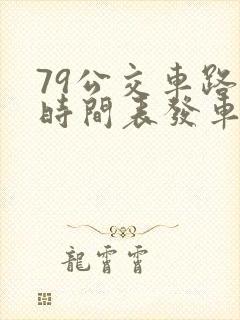 79公交車路
時間表發車
龍霄霄